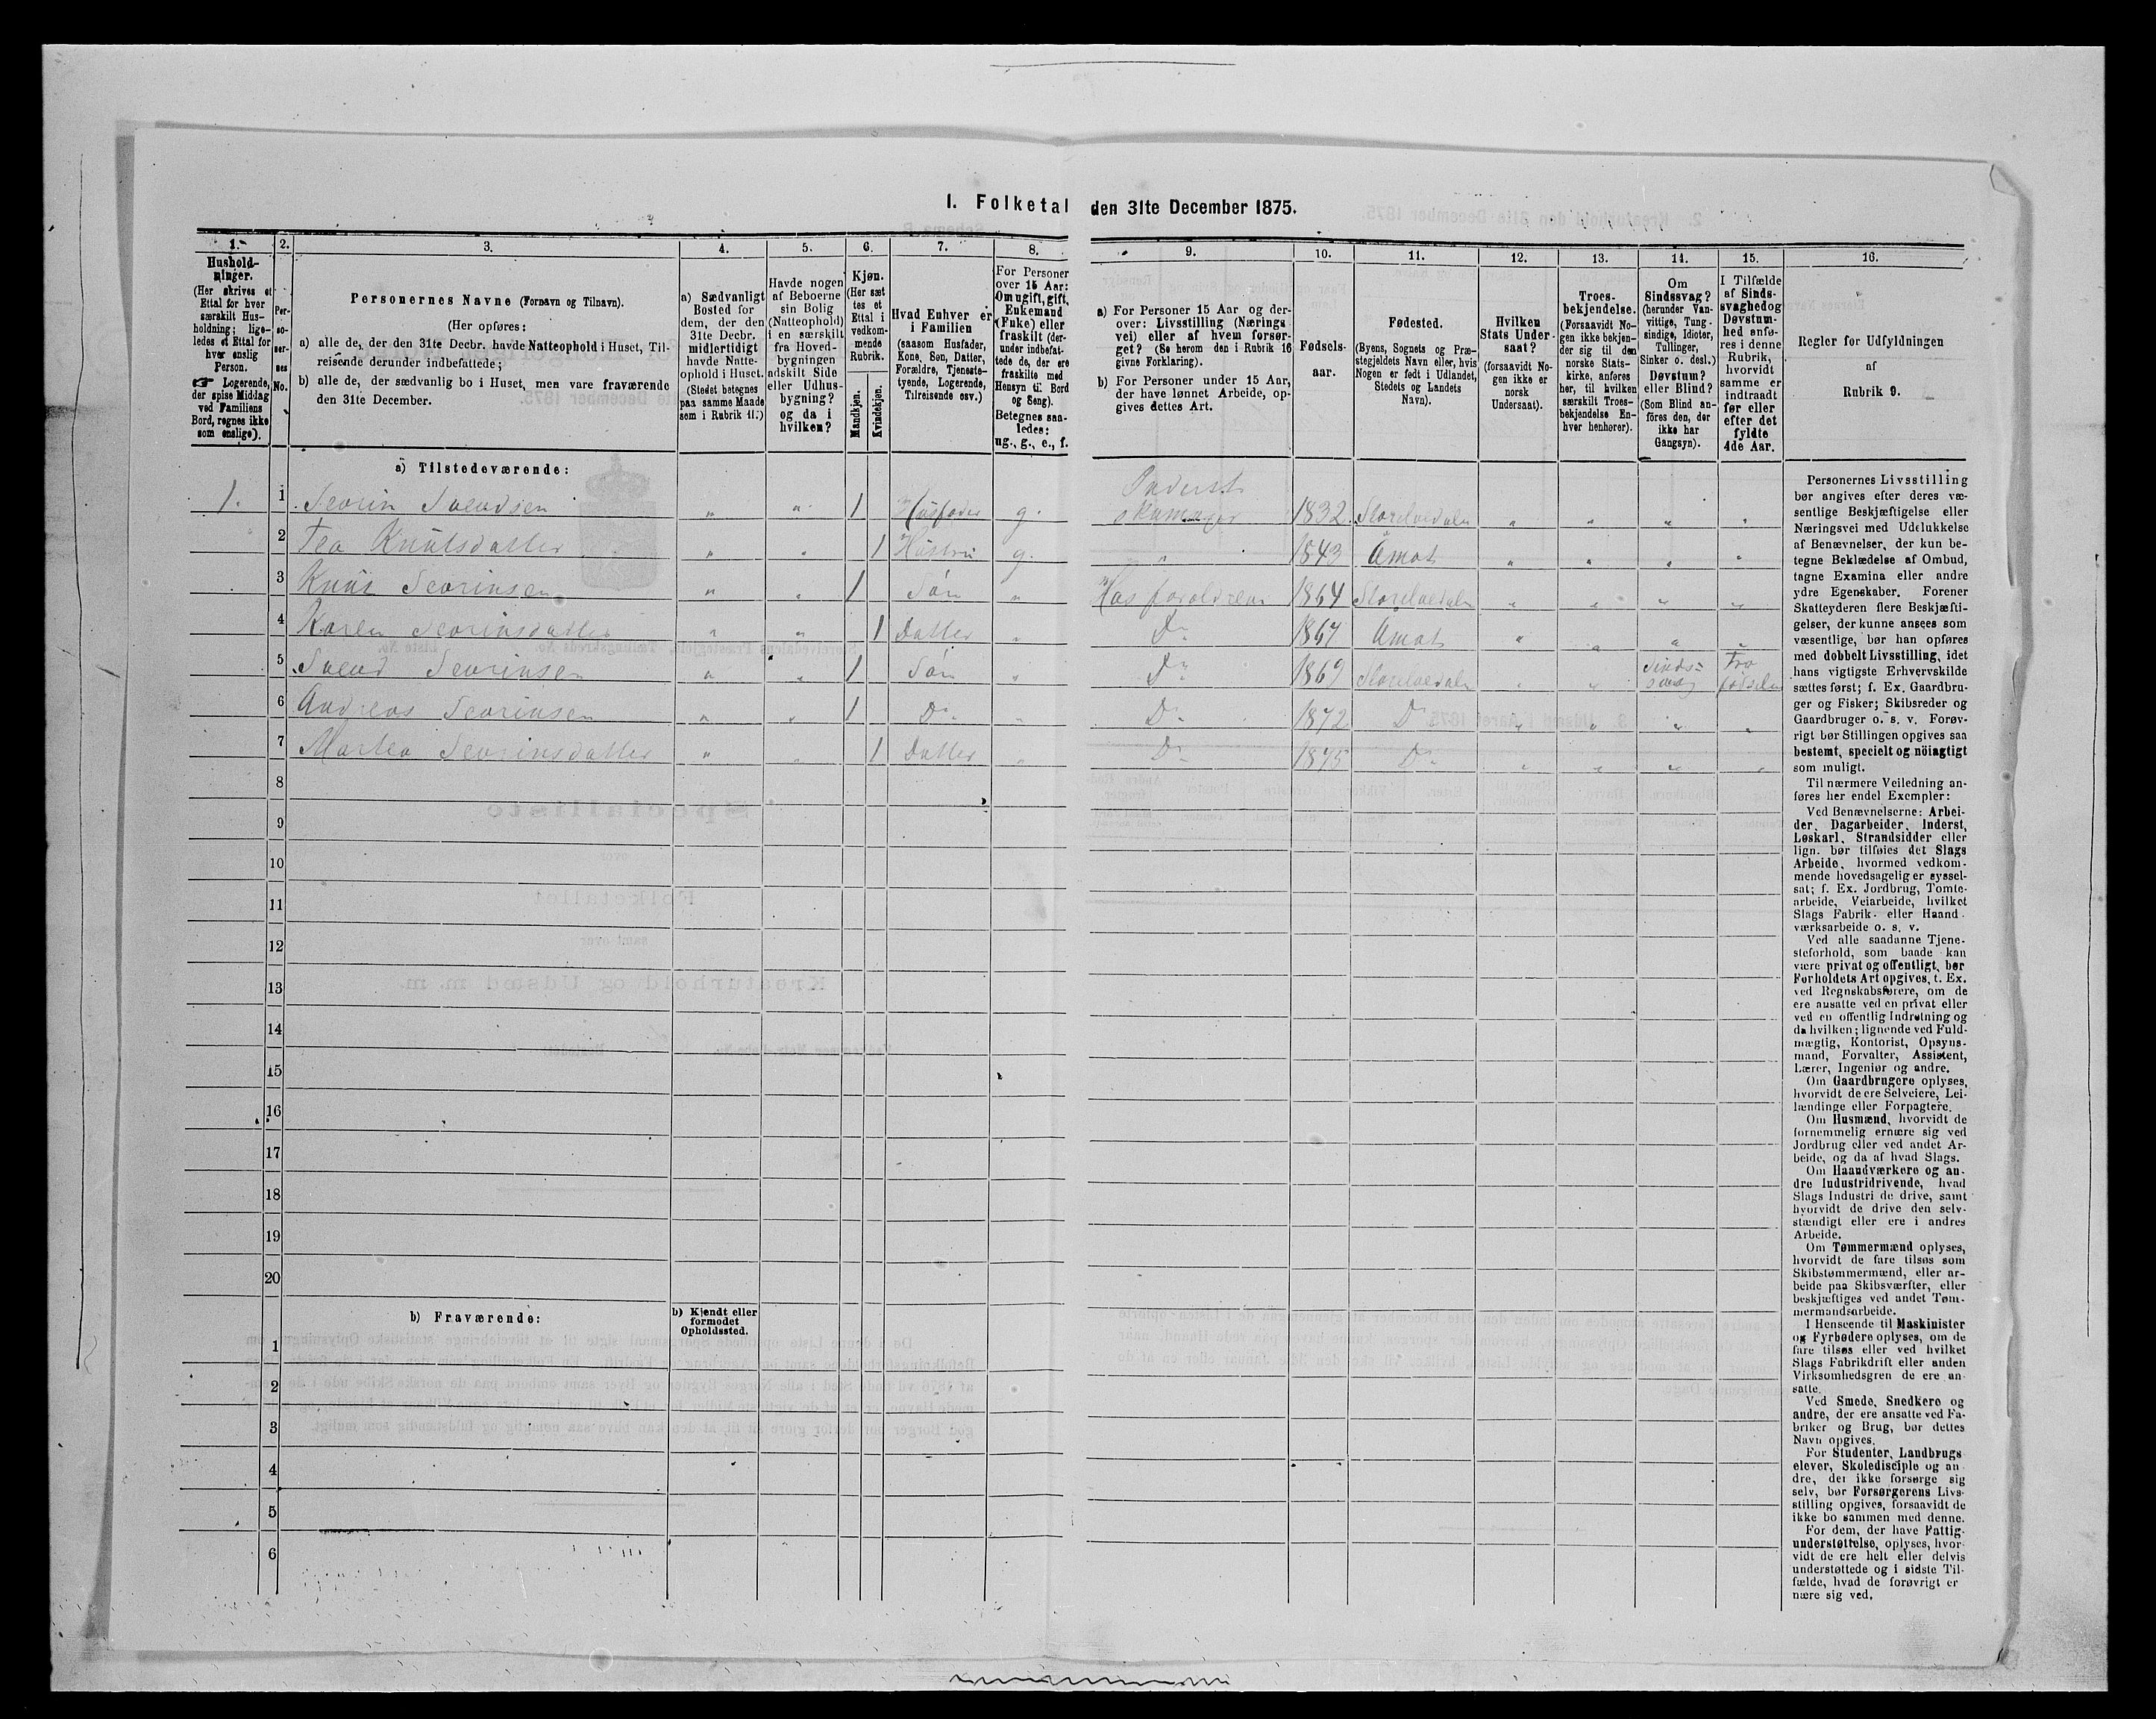 I. Folketal den 31te December 1875.
1.
Hushold-
ninger.
(Her skrives et
Ettal for hver
særskilt Hus-
holdning; lige-
ledes et Ettal for
hver enslig
Person.
☞ Logerende,
der spise Middag
ved Familiens
Bord, regnes ikke
som enslige).
2.
Per-
so-
ner-
nes
No.
3.
Personernes Navne (Fornavn og Tilnavn).
(Her opføres:
a) alle de, der den 31te Decbr. havde Natteophold i Huset, Til-
reisende derunder indbefattede;
b) alle de, der sædvanlig bo i Huset, men vare fraværende
den 31te December.
4.
a) Sædvanligt
Bosted for
dem, der den
31te Decbr.
midlertidigt
havde Natte-
ophold i Huset.
(Stedet betegnes
paa samme Maade
som i Rubrik 11.)
5.
Havde nogen
af Beboerne
sin Bolig
(Natteophold)
i en særskilt
fra Hoved-
bygningen
adskilt Side
eller Udhus-
bygning?
og da i
hvilken?
6.
Kjøn.
(Her sæt
tes et
Ettal i
vedkom-
mende
Rubrik.
Mandkjøn.
Kvindekjøn.
7.
Hvad Enhver er
i Familien
(saasom Husfader,
Kone, Søn, Datter,
Forældre, Tjeneste-
tyende, Logerende,
Tilreisende osv.)
8.
For Personer
over 15 Aar:
Om ugift, gift,
Enkemand
(Enke) eller
fraskilt (der-
under indbefat-
tede de, der ere
fraskilte med
Hensyn til Bord
og Seng).
Betegnes saa-
ledes:
ug., g., e., f.
9.
a) For Personer 15 Aar og der-
over: Livsstilling (Nærings
vei) eller af hvem forsør-
get? (Se herom den i Rubrik 16
givne Forklaring).
b) For Personer under 15 Aar,
der have lønnet Arbeide, op-
gives dettes Art.
10.
Fødsels-
aar.
11.
Fødested.
(Byens, Sognets og Præ-
stegjeldets Navn eller, hvis
Nogen er født i Udlandet,
Stedets og Landets
Navn).
12.
Hvilken
Stats Under-
saat?
(forsaavidt No-
gen ikke er
norsk
Undersaat).
13.
Troes-
bekjendelse.
(Forsaavidt No-
gen ikke bekjen-
der sig til den
norske Stats-
kirke, anføres
her, til hvilken
særskilt Troes-
bekjendelse En-
hver henhører).
14.
Om
Sindssvag?
(herunder Van-
vittige, Tung-
sindige, Idioter,
Tullinger,
Sinker o. desl.)
Døvstum?
eller Blind?
(Som Blind an-
føres den, der
ikke har
Gangsyn).
15.
I Tilfælde
af Sinds-
svaghed og
Døvstum-
hed anfø-
res i denne
Rubrik,
hvorvidt
samme er
indtraadt
før eller
efter det
fyldte
4de Aar.
16.
Regler for Udfyldningen
af
Rubrik 9.
a) Tilstedeværende:
1. 1 Seorin Svendsen „ „ 1 Husfader g. Inderst Skomager 1832 Storelvedalen „ „ „ „
2 Tea Knutsdatter „ „ 1 Hustru g. „ 1843 Åmot „ „ „ „
3 Knut Seorinsen „ „ 1 Søn „ Hos foreldrene 1864 Storelvedalen „ „ „ „
4 Karen Seorinsdatter „ „ 1 Datter „ Do 1867 Åmot „ „ „ „
5 Svend Seorinsen „ „ 1 Søn „ Do 1869 Storelvedalen „ „ Sinds- svag Fra fødselen
6 Andreas Seorinsen „ „ 1 Do „ Do 1872 Do „ „ „ „
7 Martea Seorinsdatter „ „ 1 Datter „ Do 1875 Do „ „ „ „
8
9
10
11
12
13
14
15
16
17
18
19
20
b) Fraværende:
b) Kjendt eller
formodet
Opholdssted.
1
2
3
4
5
6
Personernes Livsstilling
bør angives efter deres væ-
sentlige Beskjæftigelse eller
Næringsvei med Udelukkelse
af Benævnelser, der kun be-
tegne Beklædelse af Ombud,
tagne Examina eller andre
ydre Egenskaber. Forener
Skatteyderen flere Beskjæfti-
gelser, der kunne ansees som
væsentlige, bør han opføres
med dobbelt Livsstilling, idet
hans vigtigste Erhvervskilde
sættes først; f. Ex. Gaardbru-
ger og Fisker; Skibsreder og
Gaardbruger o. s. v. Forøv-
rigt bør Stillingen opgives saa
bestemt, specielt og nöiagtigt
som muligt.
Til nærmere Veiledning an-
føres her endel Exempler:
Ved Benævnelserne: Arbei-
der, Dagarbeider, Inderst,
Løskarl, Strandsidder eller
lign. bør tilføies det Slags
Arbeide, hvormed vedkom-
mende hovedsagelig er syssel-
sat; f. Ex. Jordbrug, Tomte-
arbeide, Veiarbeide, hvilket
Slags Fabrik- eller Haand-
værksarbeide o. s. v.
Ved alle saadanne Tjene-
steforhold, som baade kan
være privat og offentligt, bør
Forholdets Art opgives, t. Ex.
ved Regnskabsførere, om de
ere ansatte ved en privat eller
ved en offentlig Indretning og
da hvilken; lignende ved Fuld-
mægtig, Kontorist, Opsyns-
mand, Forvalter, Assistent,
Lærer, Ingeniør og andre.
Om Gaardbrugere oplyses,
hvorvidt de ere Selveiere, Lei-
lændinge eller Forpagtere.
Om Husmænd, hvorvidt de
fornemmelig ernære sig ved
Jordbrug eller ved andet Ar-
beide, og da af hvad Slags.
Om Haandværkere og an-
dre Industridrivende, hvad
Slags Industri de drive, samt
hvorvidt de drive den selv-
stændigt eller ere i andres
Arbeide.
Om Tømmermænd oplyses,
hvorvidt de fare tilsøs som
Skibstømmermænd, eller ar-
beide paa Skibsværfter, eller
beskjæftiges ved andet Tøm-
mermandsarbeide.
I Henseende til Maskinister
og Fyrbødere oplyses, om de
fare tilsøs eller ved hvilket
Slags Fabrikdrift eller anden
Virksomhedsgren de ere an-
satte.
Ved Smede, Snedkere og
andre, der ere ansatte ved Fa-
briker og Brug, bør dettes
Navn opgives.
For Studenter, Landbrugs
elever, Skoledisciple og an-
dre, der ikke forsørge sig
selv, bør Forsørgerens Livs-
stilling opgives, forsaavidt de
ikke bo sammen med denne.
For dem, der have Fattig-
understøttelse, oplyses, hvor-
vidt de ere helt eller delvis
understøttede og i sidste Til-
fælde, hvad de forøvrigt er-
nære sig ved.